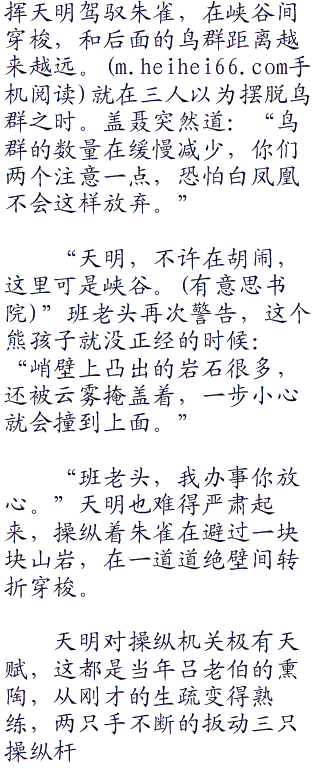 挥天明驾驭朱雀，在峡谷间
穿梭，和后面的鸟群距离越
来越远。(m.heihei66.com手
机阅读)就在三人以为摆脱鸟
群之时。盖聂突然道：“鸟
群的数量在缓慢减少，你们
两个注意一点，恐怕白凤凰
不会这样放弃。”
“天明，不许在胡闹，
这里可是峡谷。(有意思书
院)”班老头再次警告，这个
熊孩子就没正经的时候：
“峭壁上凸出的岩石很多，
还被云雾掩盖着，一步小心
就会撞到上面。”
“班老头，我办事你放
心。”天明也难得严肃起
来，操纵着朱雀在避过一块
块山岩，在一道道绝壁间转
折穿梭。
天明对操纵机关极有天
赋，这都是当年吕老伯的熏
陶，从刚才的生疏变得熟
练，两只手不断的扳动三只
操纵杆